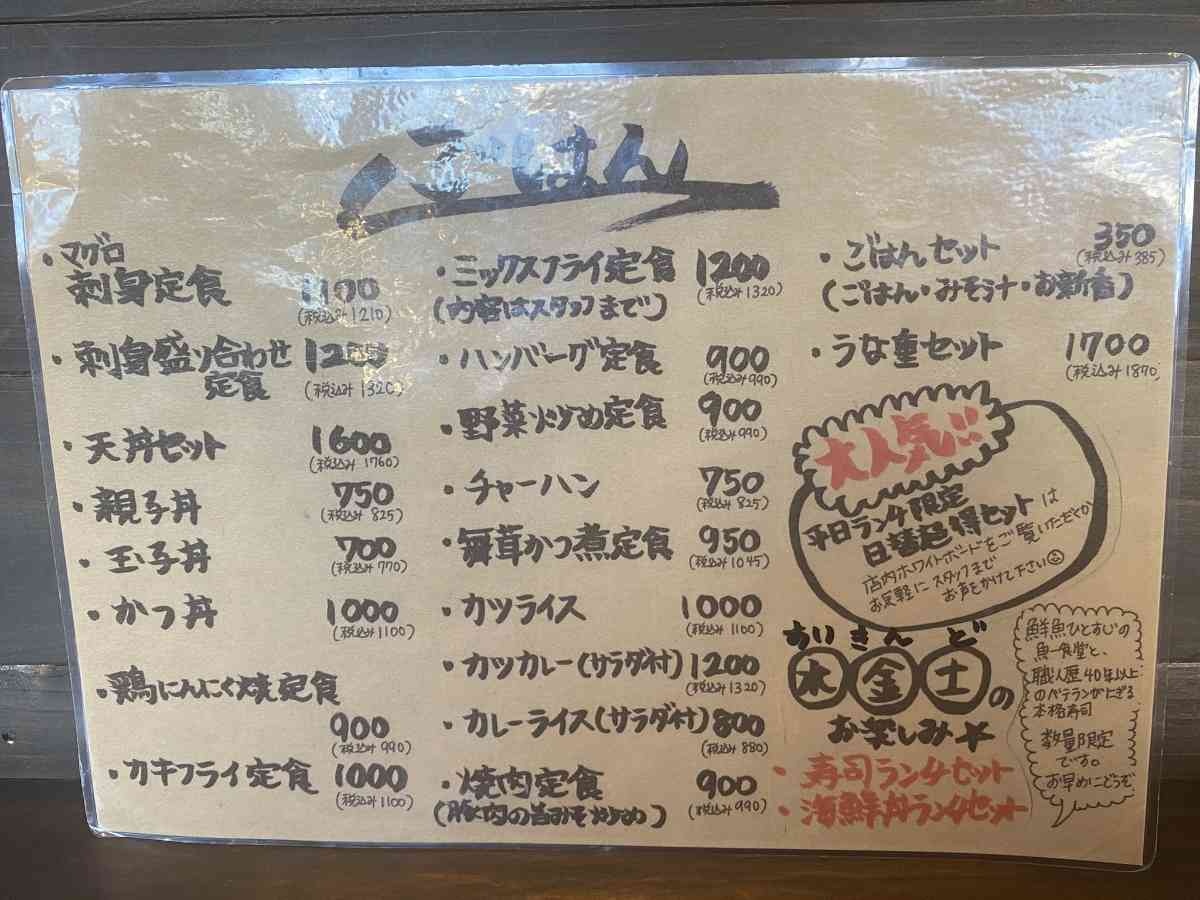 ごはん
・マグロ
刺身定食 1100
(税込み1210)
・刺身盛り合わせ 1200
定食 (税込み1320)
・天丼セット 1600
(税込み1760)
・親子丼 750
(税込み825)
・玉子丼 700
(税込み770)
・かつ丼 1000
(税込み1100)
・鶏にんにく焼定食
900
(税込み990)
・カキフライ定食 1000
(税込み1100)
・ミックスフライ定食 1200
(内容はスタッフまで) (税込み1320)
・ハンバーグ定食 900
(税込み990)
・野菜炒め定食 900
(税込み990)
・チャーハン 750
(税込み825)
・舞茸かつ煮定食 950
(税込み1045)
・カツライス 1000
(税込み1100)
・カツカレー(サラダ付) 1200
(税込み1320)
・カレーライス(サラダ付) 800
(税込み880)
・焼肉定食 900
(豚肉の旨みそ炒め) (税込み990)
・ごはんセット 350
(税込み385)
(ごはん・みそ汁・お新香)
・うな重セット 1700
(税込み1870)
大人気!!
平日ランチ限定
日替超得セットは
店内ホワイトボードをご覧いただくか
お気軽にスタッフまで
お声をかけて下さい
もくきんど
木金土の
お楽しみ
・寿司ランチセット
・海鮮丼ランチセット
鮮魚ひとすじの
魚一食堂と、
職人歴40年以上
のベテランがにぎる
本格寿司
数量限定
です。
お早めにどうぞ